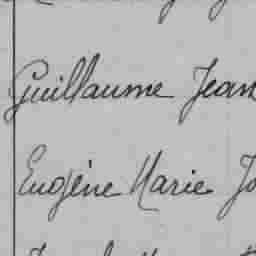 Guillaume Jean
Eugène Marie